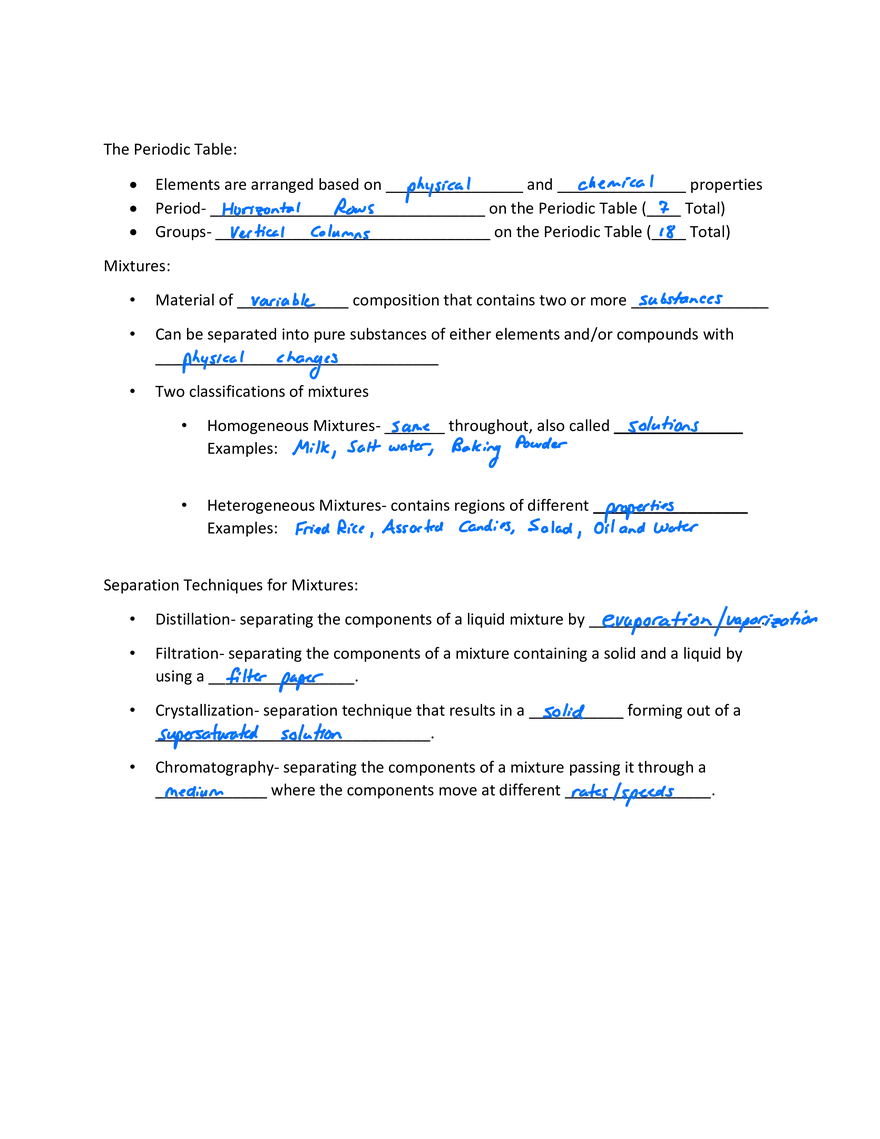 The Periodic Table:
• Elements are arranged based on physical and chemical properties
• Period- Horizontal Rows on the Periodic Table (7 Total)
• Groups- Vertical Columns on the Periodic Table (18 Total)
Mixtures:
• Material of variable composition that contains two or more substances
• Can be separated into pure substances of either elements and/or compounds with
physical changes
• Two classifications of mixtures
• Homogeneous Mixtures- same throughout, also called solutions
Examples: Milk, Salt water, Baking Powder
• Heterogeneous Mixtures- contains regions of different properties
Examples: Fried Rice, Assorted Candies, Salad, Oil and Water
Separation Techniques for Mixtures:
• Distillation- separating the components of a liquid mixture by evaporation/vaporization
• Filtration- separating the components of a mixture containing a solid and a liquid by
using a filter paper.
• Crystallization- separation technique that results in a solid forming out of a
supersaturated solution.
• Chromatography- separating the components of a mixture passing it through a
medium where the components move at different rates/speeds.